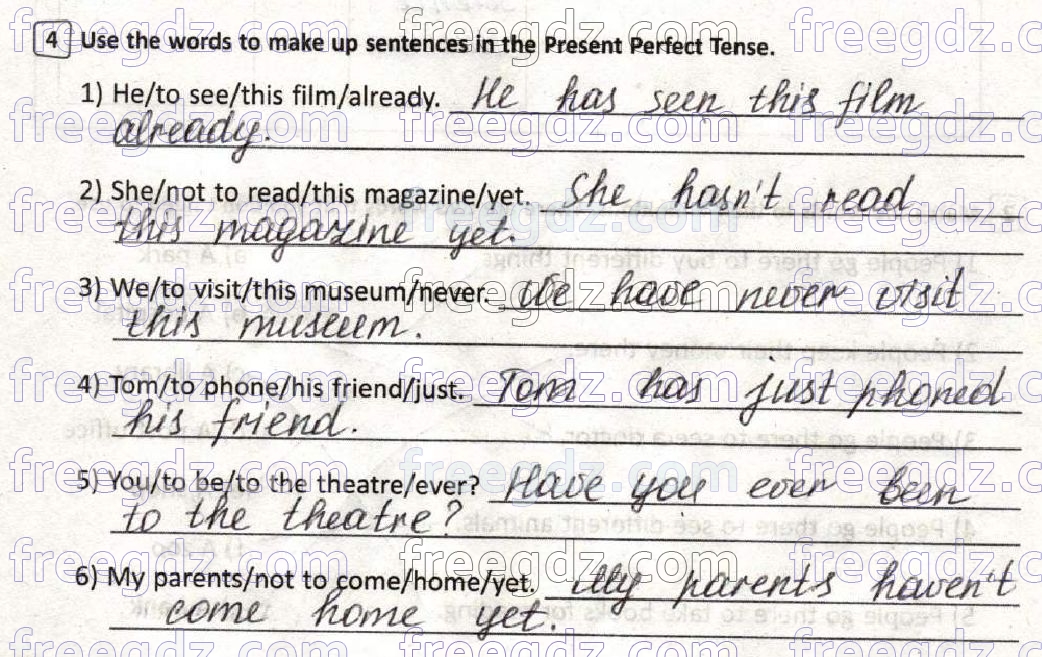 4 Use the words to make up sentences in the Present Perfect Tense.
1) He/to see/this film/already. He has seen this film
already.
2) She/not to read/this magazine/yet. She hasn't read
this magazine yet.
3) We/to visit/this museum/never. We have never visit
this museum.
4) Tom/to phone/his friend/just. Tom has just phoned
his friend.
5) You/to be/to the theatre/ever? Have you ever been
to the theatre?
6) My parents/not to come/home/yet. My parents haven't
come home yet.
freegdz.com